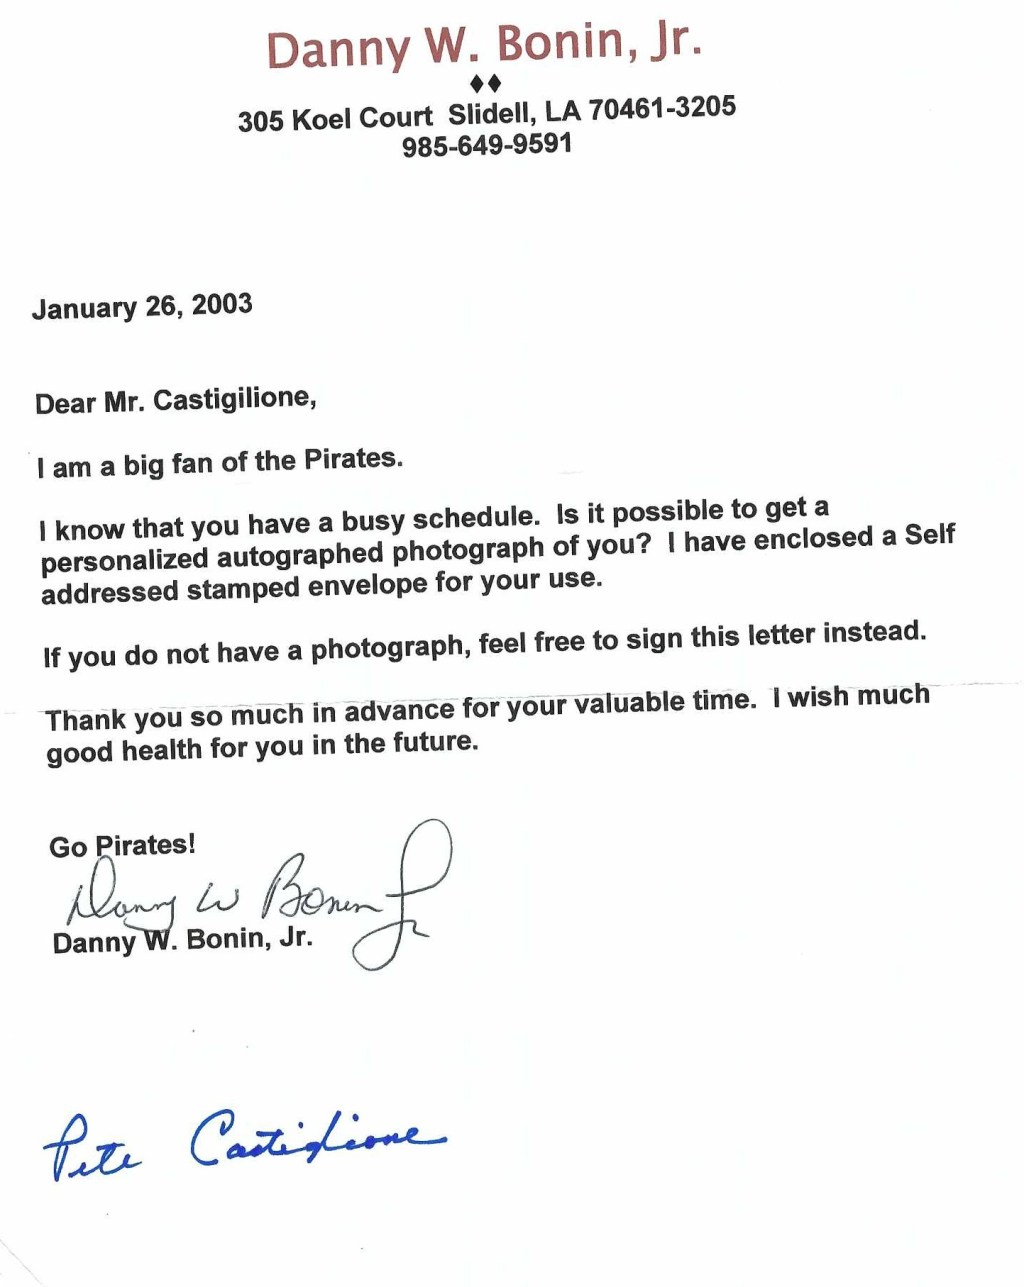 Danny W. Bonin, Jr.
♦♦
305 Koel Court Slidell, LA 70461-3205
985-649-9591
January 26, 2003
Dear Mr. Castigilione,
I am a big fan of the Pirates.
I know that you have a busy schedule. Is it possible to get a
personalized autographed photograph of you? I have enclosed a Self
addressed stamped envelope for your use.
If you do not have a photograph, feel free to sign this letter instead.
Thank you so much in advance for your valuable time. I wish much
good health for you in the future.
Go Pirates!
Danny W Bonin Jr
Danny W. Bonin, Jr.
Pete Castiglione